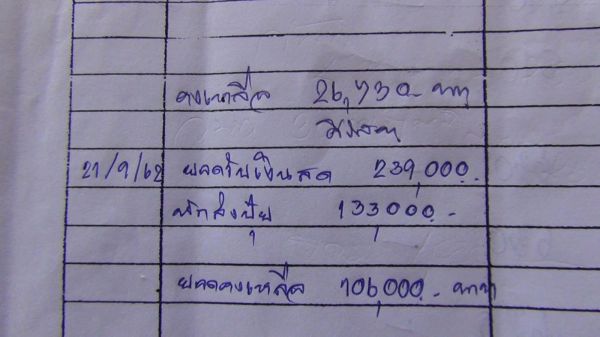 คงเหลือ 26,730.- บาท
21/9/62 ยอดรับเงินสด 239,000.-
หักส่งปุ๋ย 133,000.-
ยอดคงเหลือ 106,000.- บาท